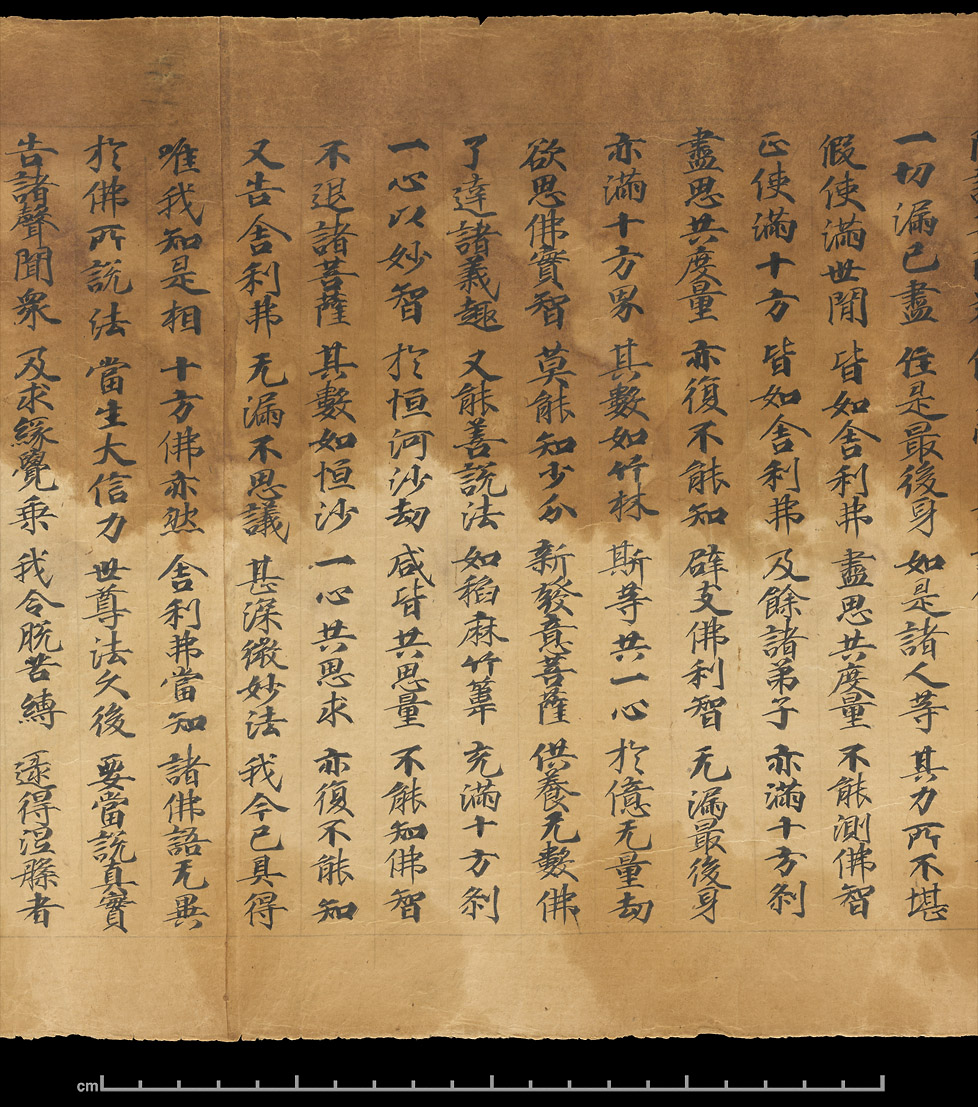 一切漏已盡 住是最後身 如是諸人等 其力所不堪
假使滿世間 皆如舍利弗 盡思共度量 不能測佛智
正使滿十方 皆如舍利弗 及餘諸弟子 亦滿十方剎
盡思共度量 亦復不能知 辟支佛利智 无漏最後身
亦滿十方界 其數如竹林 斯等共一心 於億无量劫
欲思佛實智 莫能知少分 新發意菩薩 供養无數佛
了達諸義趣 又能善說法 如稻麻竹葦 充滿十方剎
一心以妙智 於恒河沙劫 咸皆共思量 不能知佛智
不退諸菩薩 其數如恒沙 一心共思求 亦復不能知
又告舍利弗 无漏不思議 甚深微妙法 我今已具得
唯我知是相 十方佛亦然 舍利弗當知 諸佛語无異
於佛所說法 當生大信力 世尊法久後 要當說真實
告諸聲聞衆 及求緣覺乘 我令脫苦縛 逮得涅槃者
cm